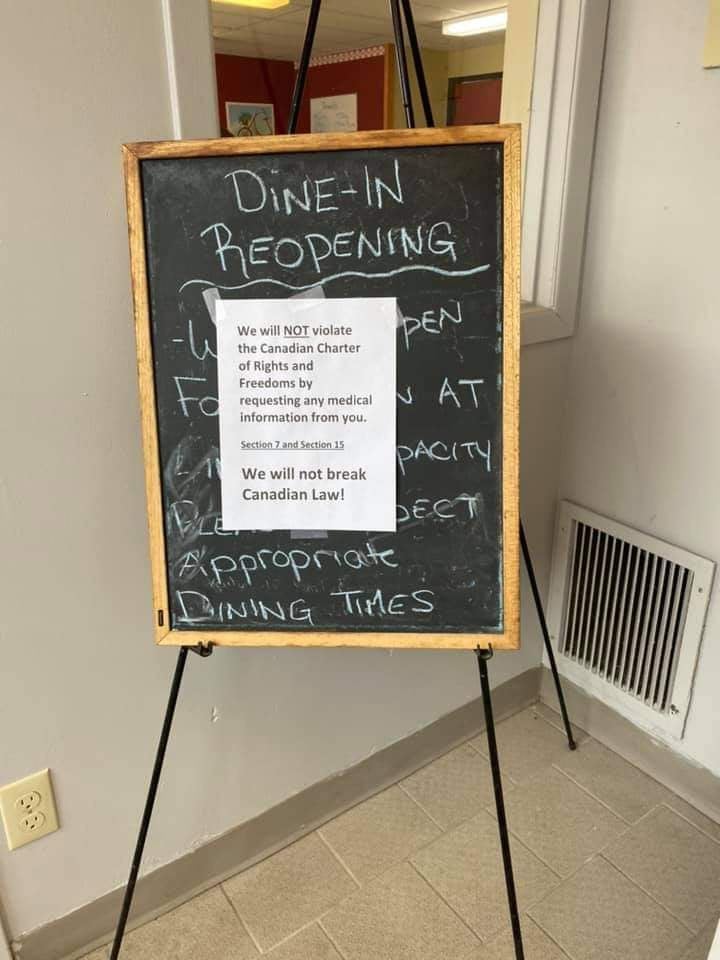 DINE-IN
REOPENING
PEN
AT
We will NOT violate
the Canadian Charter
of Rights and
Freedoms by
requesting any medical
information from you.
Section 7 and Section 15
We will not break
Canadian Law!
PACITY
Appropriate
DINING TIMES